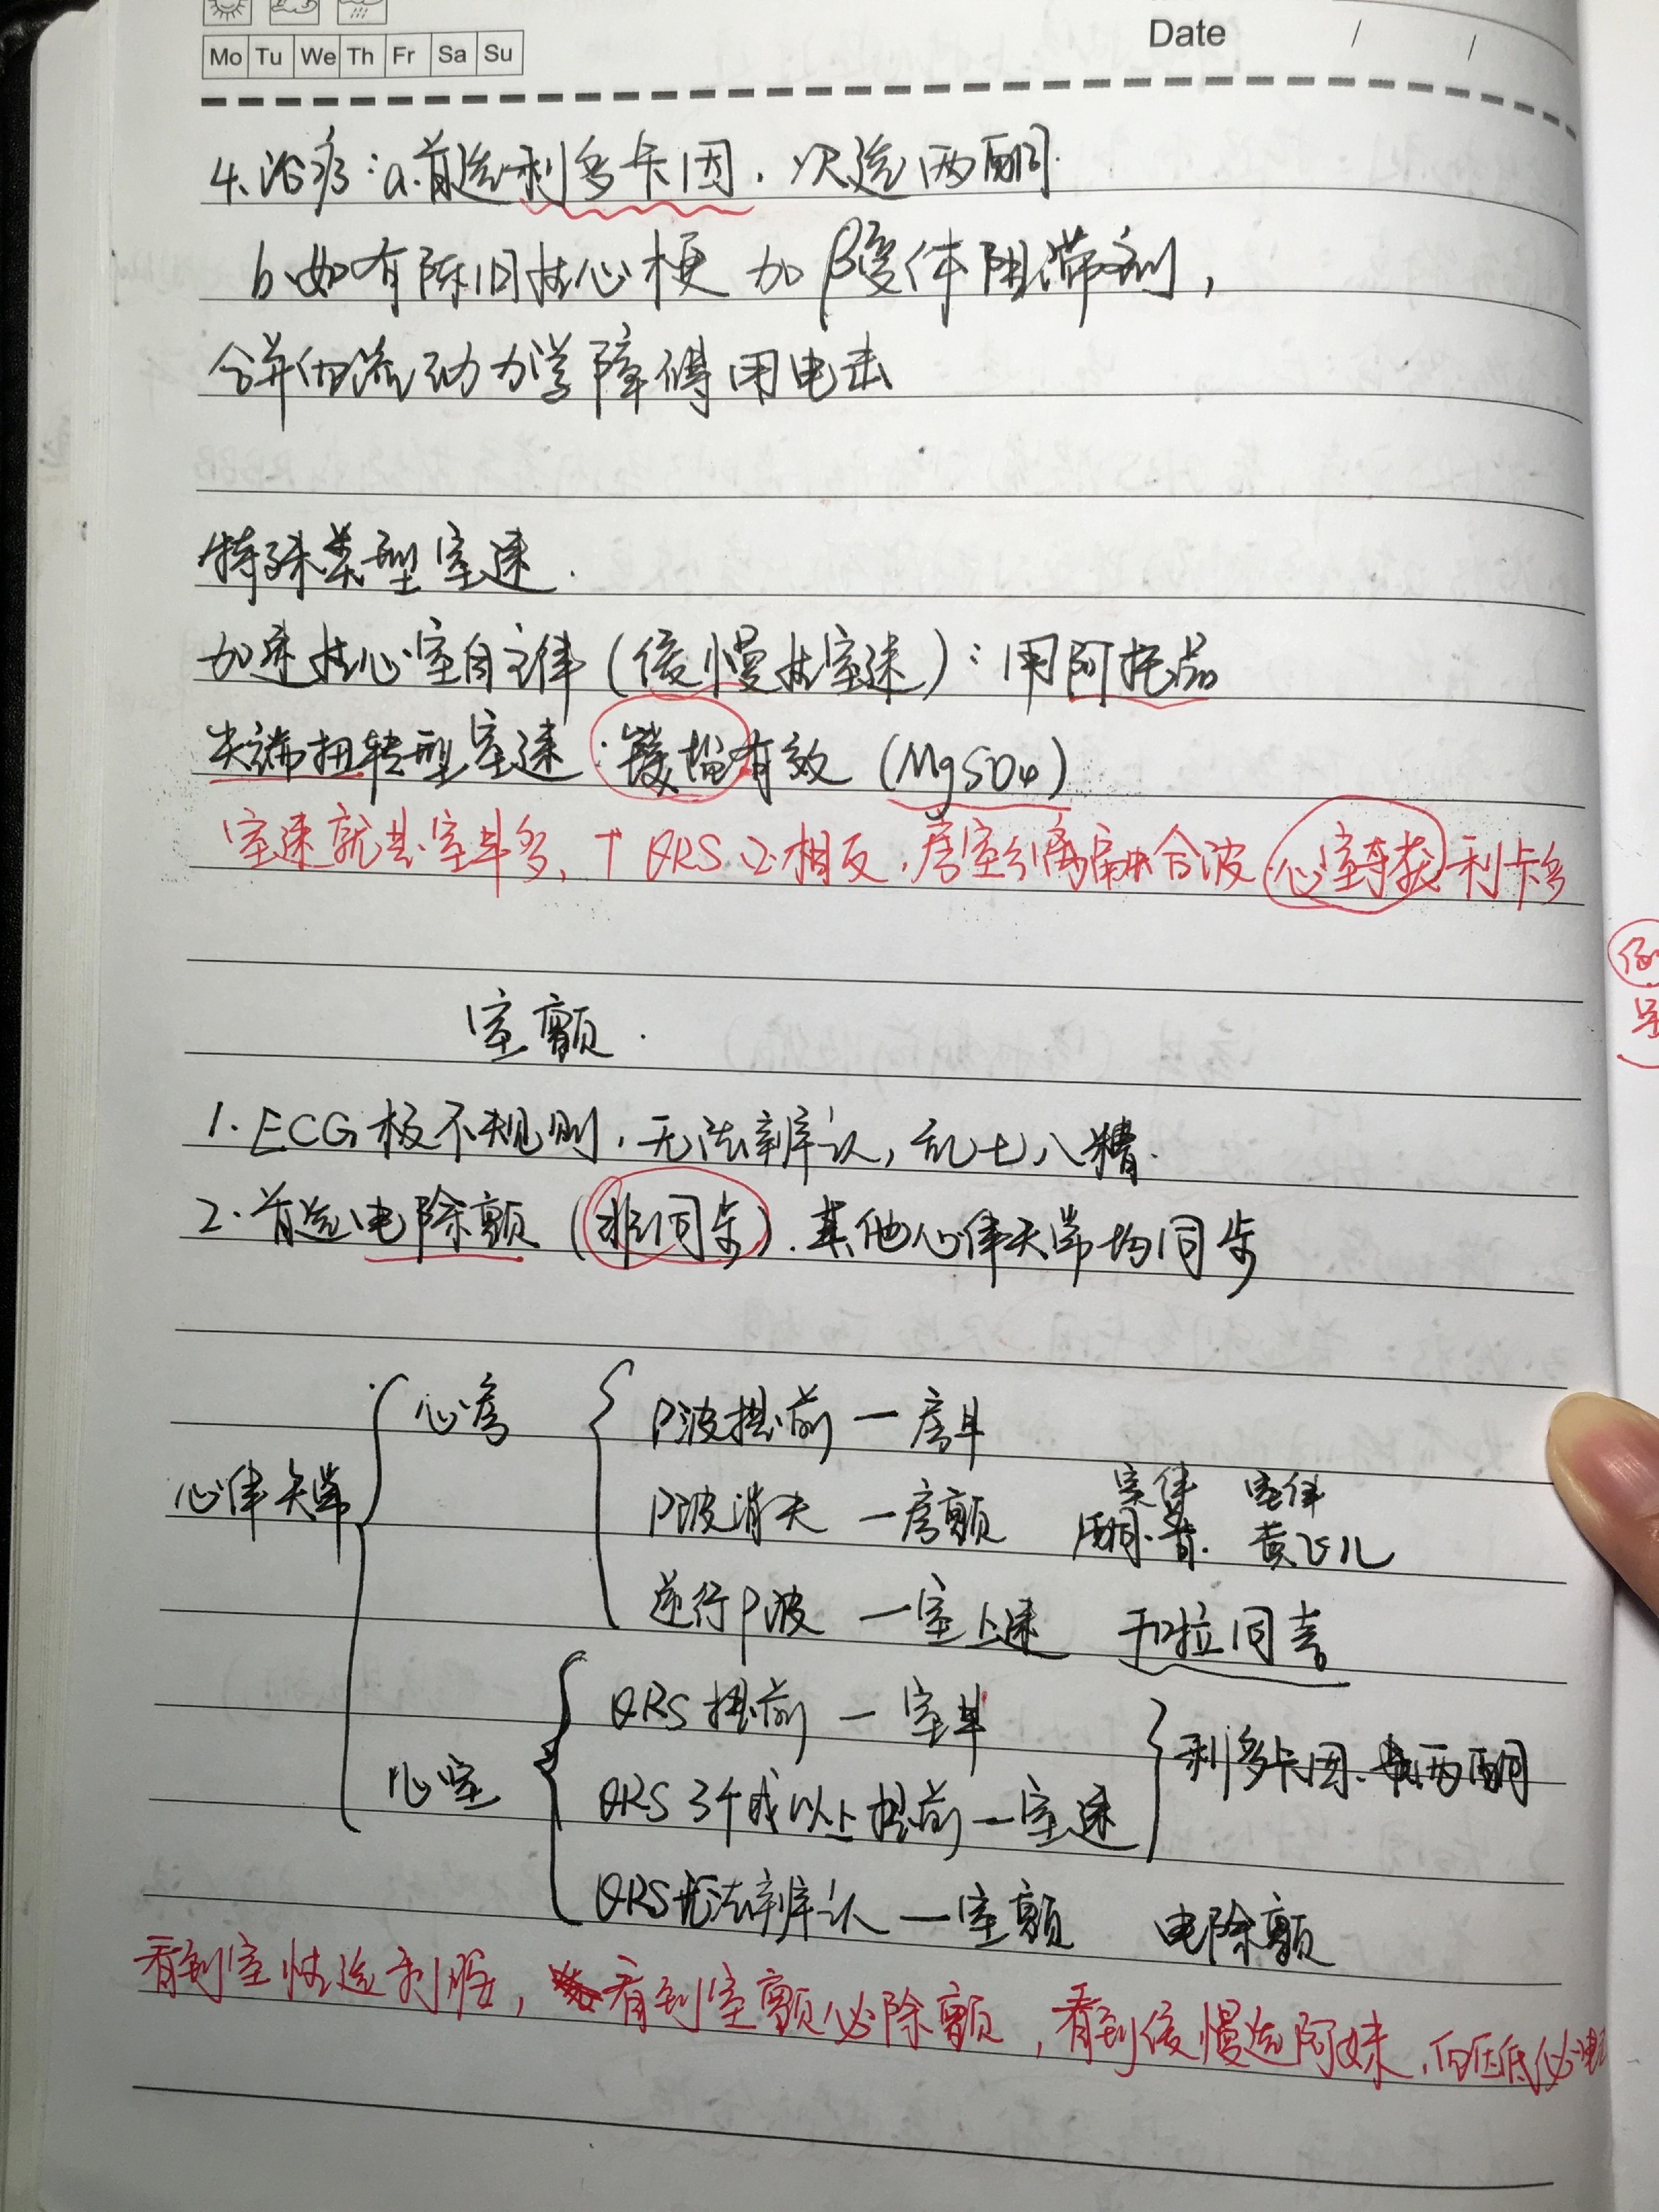 Mo Tu We Th Fr Sa Su
Date / /
4.治疗:a.首选利多卡因.次选两酮.
b.如有陈旧性心梗 加β受体阻滞剂,
合并血流动力学障碍用电击
特殊类型室速.
加速性心室自主律(缓慢性室速):用阿托品
尖端扭转型室速:镁盐有效(MgSO4)
室速就是室早多,T QRS 必相反,房室分离融合波 心室夺获 利卡多
室颤.
1.ECG极不规则.无法辨认,乱七八糟.
2.首选电除颤(非同步).其他心律失常均同步
心律失常
心房
P波提前—房早
P波消失—房颤
逆行P波—室上速
酮.普.
心室
QRS提前—室早
QRS 3个或以上提前—室速
利多卡因.两酮
QRS无法辨认—室颤 电除颤
看到室性选利胺,看到室颤必除颤,看到缓慢选阿妹,血压低必电